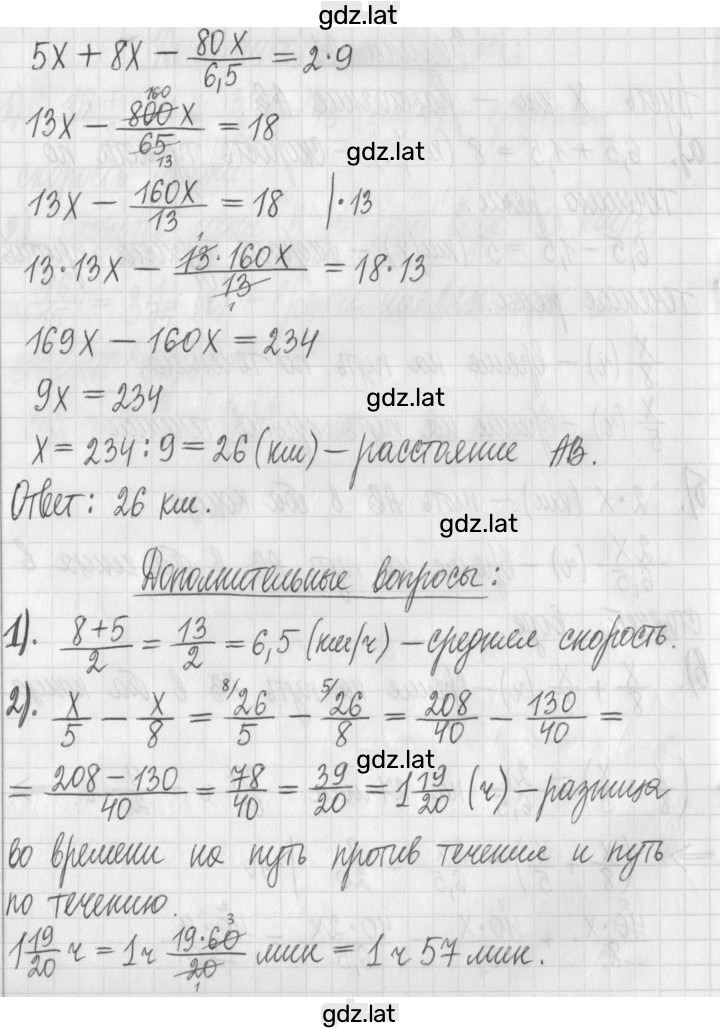 gdz.lat
5x + 8x − 80x/6,5 = 2·9
13x − 800x/65 = 18
160
13
gdz.lat
13x − 160x/13 = 18 |·13
13·13x − 13·160x/13 = 18·13
1
1
169x − 160x = 234
9x = 234
gdz.lat
x = 234 : 9 = 26 (км) – расстояние АВ.
Ответ: 26 км.
gdz.lat
Дополнительные вопросы:
1). (8+5)/2 = 13/2 = 6,5 (км/ч) – средняя скорость.
2). x/5 − x/8 = 8/26/5 − 5/26/8 = 208/40 − 130/40 =
gdz.lat
= (208 − 130)/40 = 78/40 = 39/20 = 1 19/20 (ч) – разница
во времени на путь против течения и путь
по течению.
1 19/20 ч = 1 ч 19·60/20 мин = 1 ч 57 мин.
3
1
gdz.lat